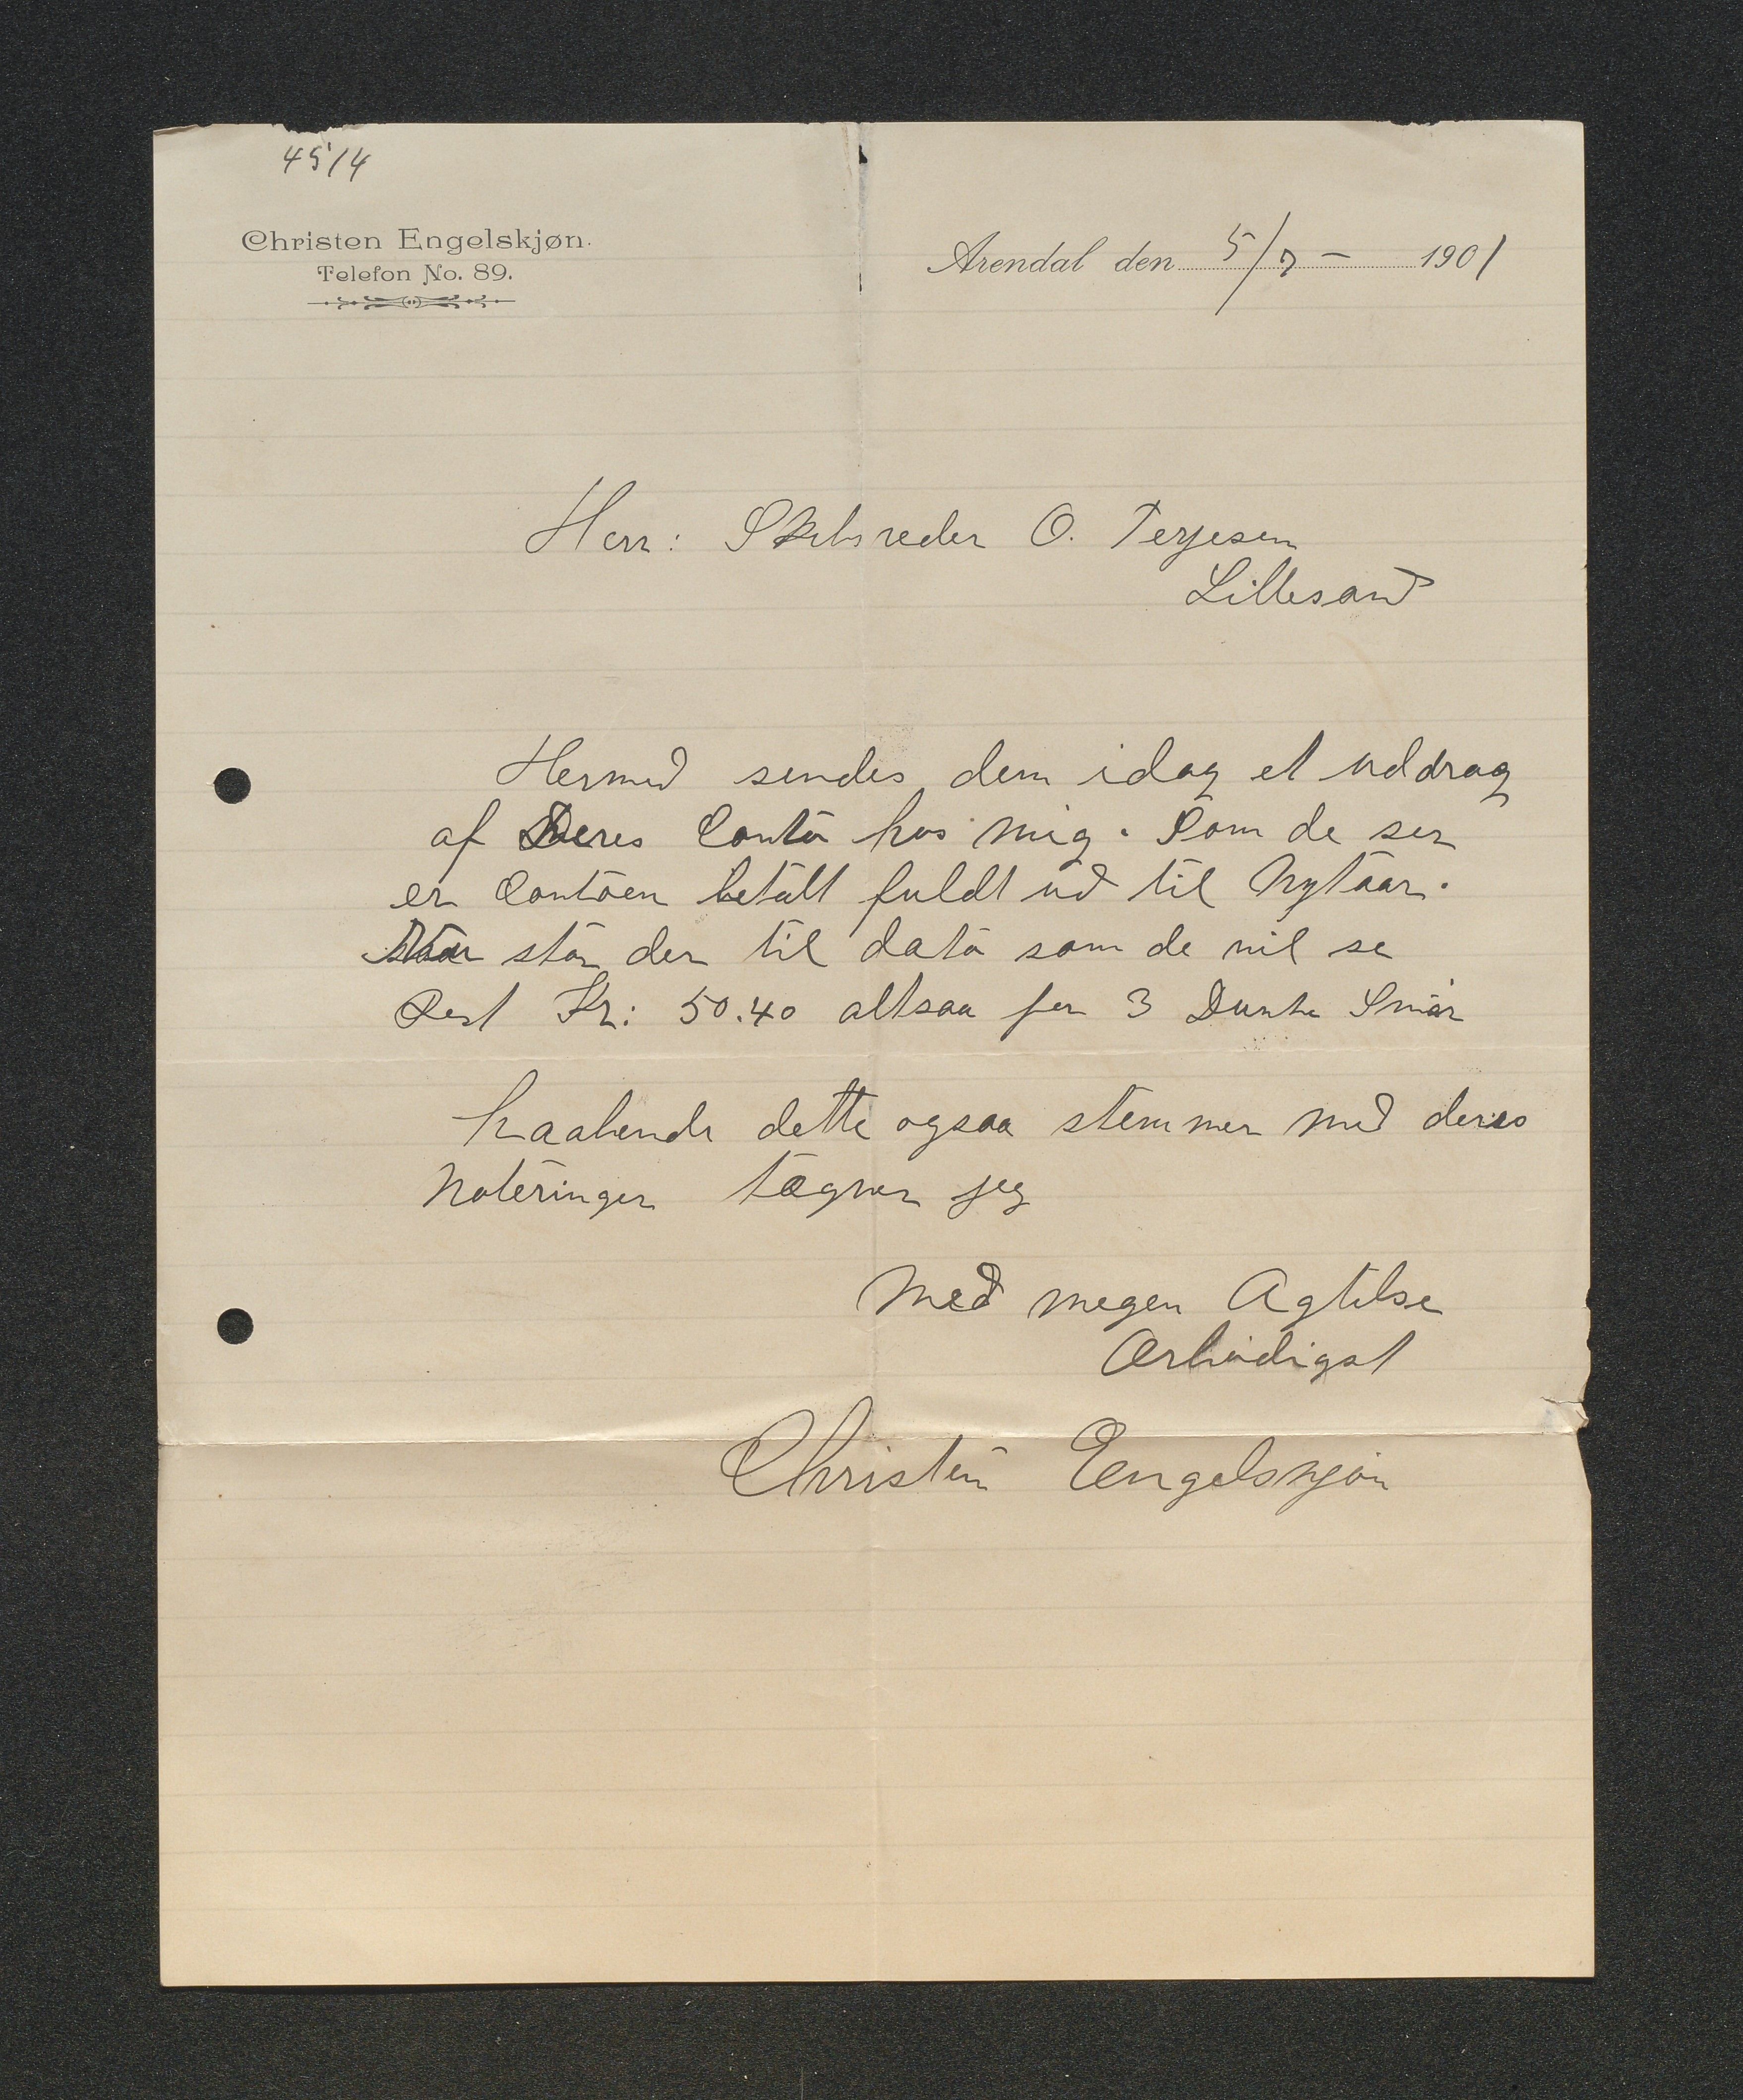 4514
Christen Engelskjøn.
Telefon No. 89.
Arendal den 5/7 - 1901
Herr: Skibsreder O. Terjesen
Lillesand
Hermed sendes dem idag et uddrag
af Deres Conto hos mig. Som de ser
er Contoen betalt fuldt ud til Nytaar.
står der til dato som de vil se
Rest Kr: 50.40 altsaa for 3 Dunke Smør
haabende dette ogsaa stemmer med deres
Noteringer tegner jeg
Med megen Agtelse
Ærbødigst
Christen Engelskjøn